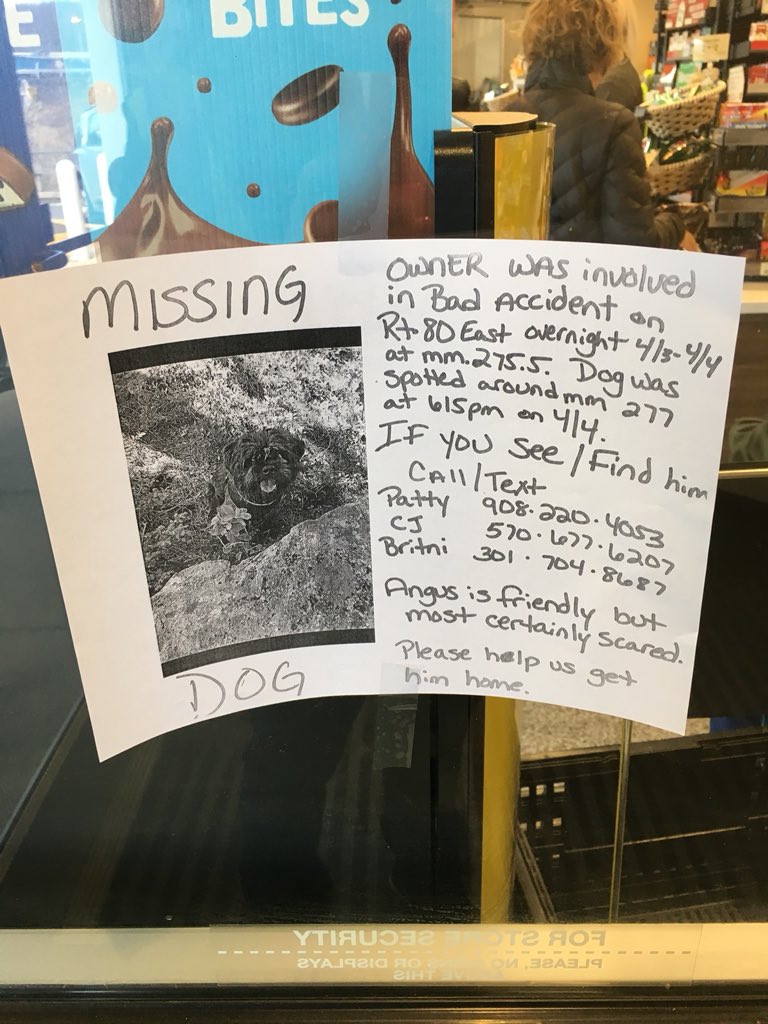 E
BITES
MISSING
DOG
OWNER WAS involved
in Bad Accident on
Rt. 80 East overnight 4/3-4/4
at mm. 275.5. Dog was
spotted around mm 277
at 615pm on 4/4.
IF YOU See/Find him
Call/Text
Patty 908.220.4053
CJ 570.677.6207
Britni 301.704.8687
Angus is friendly but
most certainly scared.
Please help us get
him home.
FOR STORE SECURITY
PLEASE, NO SIGNS OR DISPLAYS
THIS